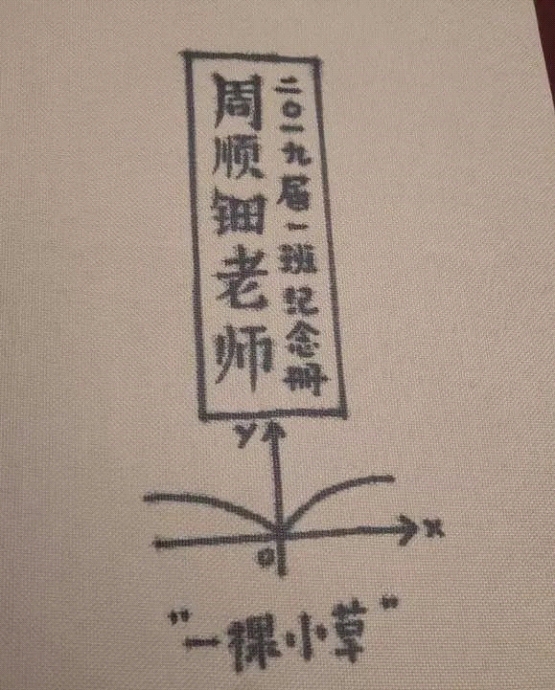 二〇一九届一班纪念册
周顺钿老师
y
x
0
"一棵小草"